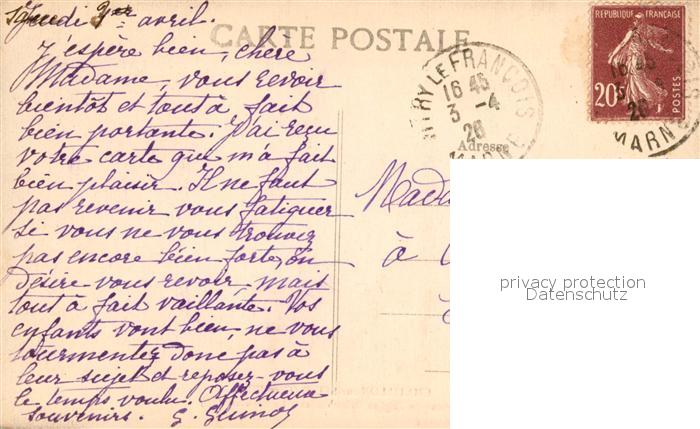 avril.
J'espère bien, chère
Madame, vous revoir
bientôt et tout à fait
bien portante. J'ai reçu
votre carte qui m'a fait
bien plaisir. Il ne faut
pas revenir vous fatiguer
si vous ne vous trouvez
pas encore bien forte, on
désire vous revoir, mais
tout à fait vaillante. Vos
enfants vont bien, ne vous
tourmentez donc pas à
leur sujet et reposez-vous
le temps voulu. Affectueux
souvenirs. G.
CARTE POSTALE
Adresse
VITRY LE FRANCOIS
16 45
3 -4
26
MARNE
RÉPUBLIQUE FRANÇAISE
20c
POSTES
16 45
26
MARNE
Mada
à
privacy protection
Datenschutz